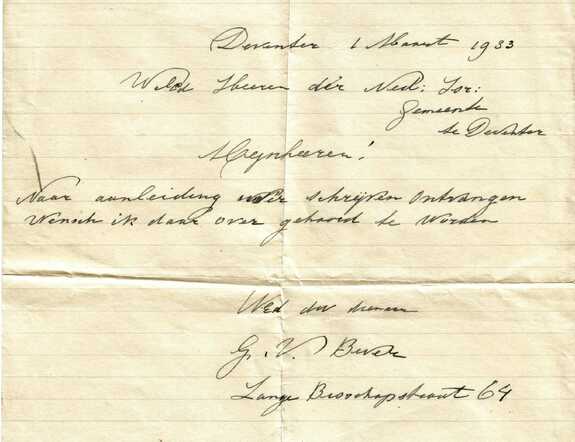 Deventer 1 Maart 1933
WelEd Heeren der Ned: Isr:
Gemeente
te Deventer
Mijnheeren!
Naar aanleiding uwer schrijven ontvangen
Wensch ik daar over gehoord te worden
UEd dw dienaar
G. V.
Lange Bisschopstraat 64